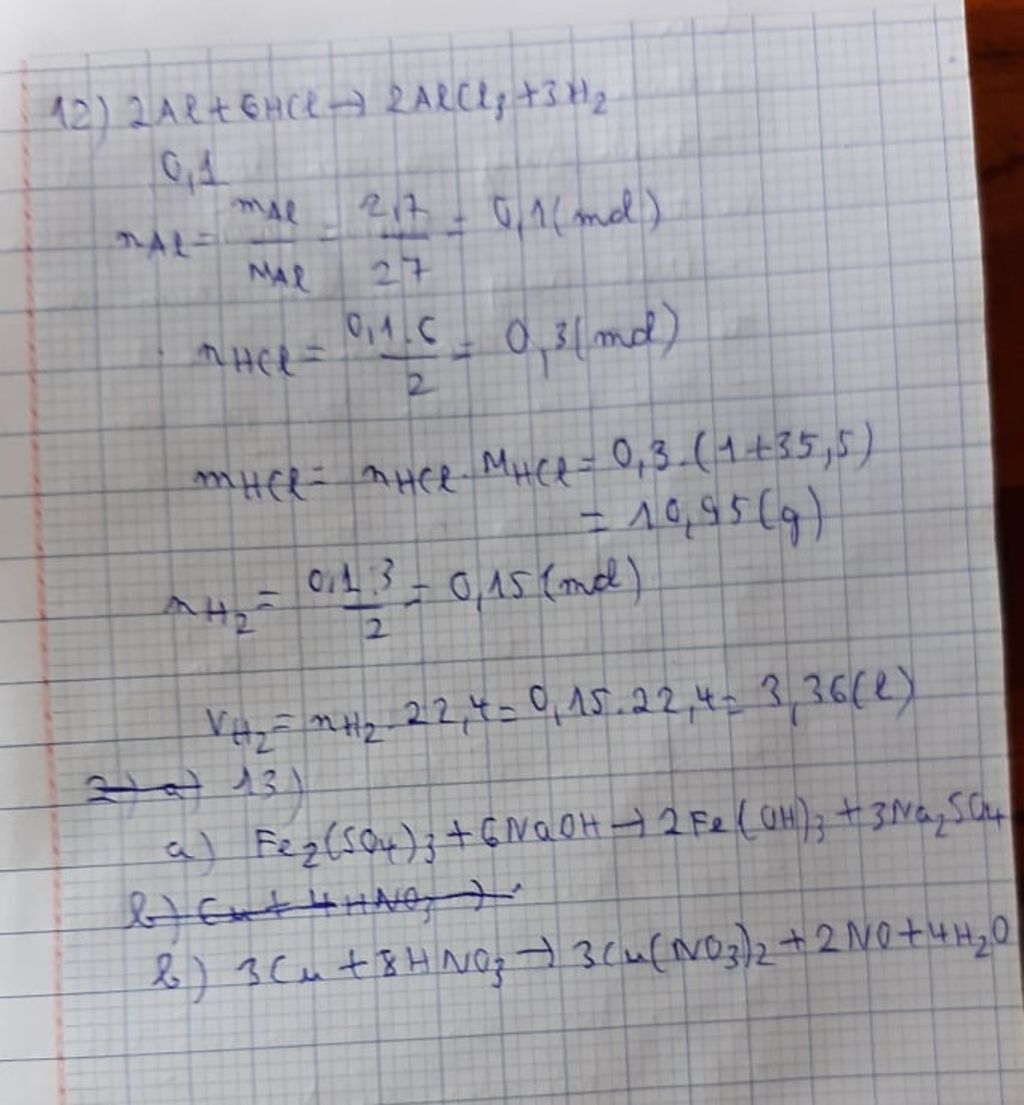 12) 2Al + 6HCl → 2AlCl₃ + 3H₂
0,1
nAl = mAl/MAl = 2,7/27 = 0,1 (mol)
nHCl = 0,1.6/2 = 0,3 (mol)
mHCl = nHCl . MHCl = 0,3.(1+35,5)
= 10,95 (g)
nH₂ = 0,1.3/2 = 0,15 (mol)
VH₂ = nH₂ . 22,4 = 0,15.22,4 = 3,36 (l)
2) a) 13)
a) Fe₂(SO₄)₃ + 6NaOH → 2Fe(OH)₃ + 3Na₂SO₄
b) Cu + 4HNO₃ →
b) 3Cu + 8HNO₃ → 3Cu(NO₃)₂ + 2NO + 4H₂O